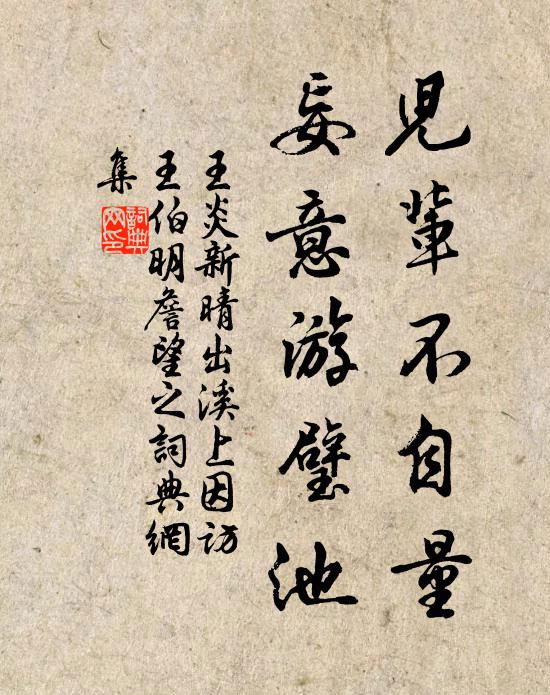 兒輩不自量
妄意游璧池
王炎新晴出溪上因訪
王伯明詹望之詞典網
集
詞典
网印